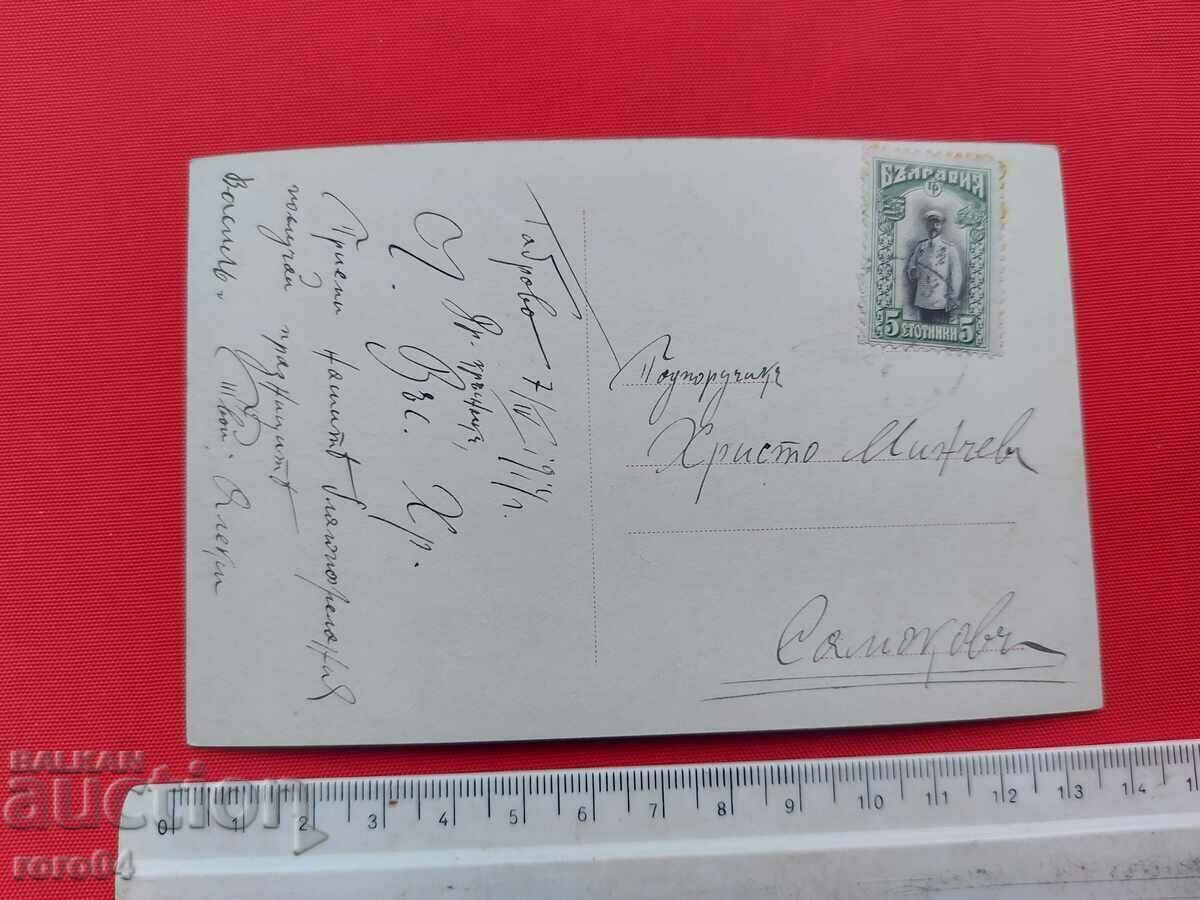 Габрово 7/IV 1914 г.
Др.
Ч. Въс. Хр.
Приеми нашитѣ благопожелания
получай празницитѣ
Весель.
Твой: Алеки
БЪЛГАРИЯ
5 СТОТИНКИ 5
Подпоручикъ
Христо Минчевъ
Самоковъ
BALKAN
auction
roro04
0 1 2 3 4 5 6 7 8 9 10 11 12 13 14 1